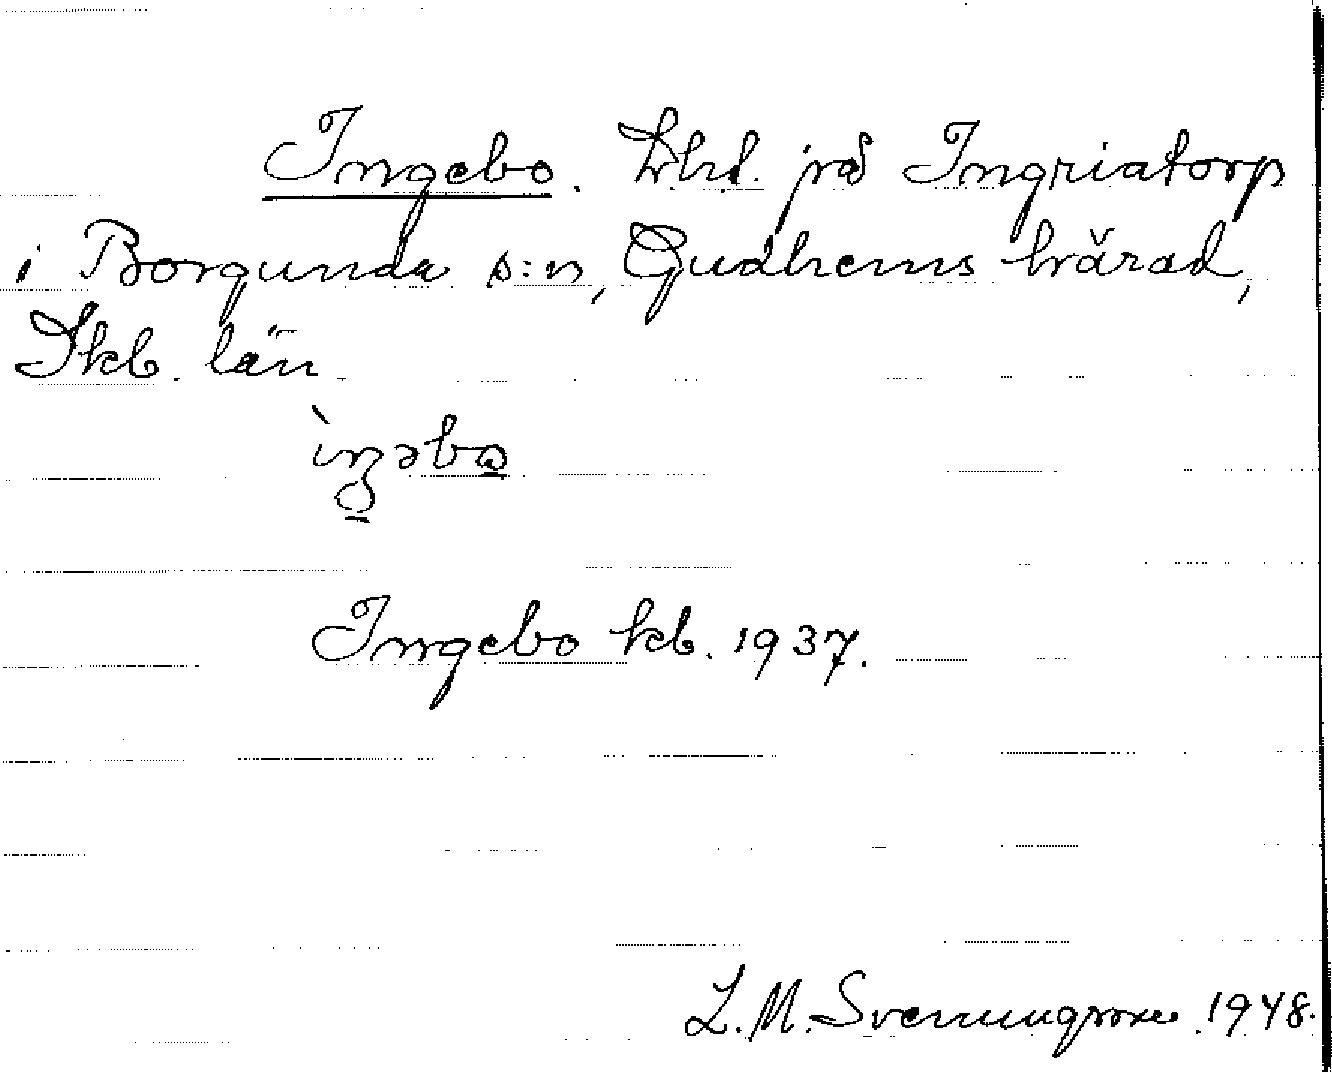 Ingebo. Lht. på Ingriatorp
i Borgunda s:n, Gudhems härad,
Skb. län
Ingebo kb. 1937.
L. M. Svenungsson 1948.